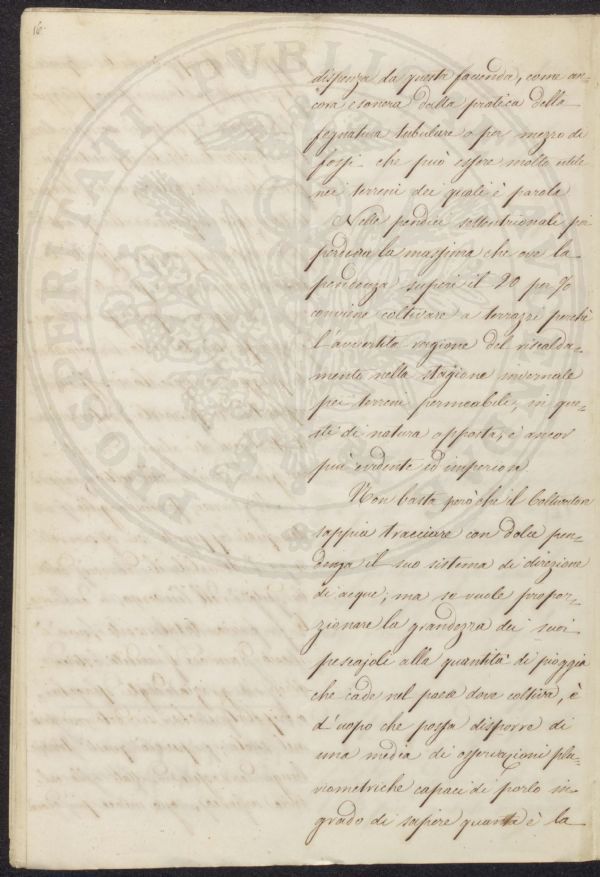 16.
dispenza da questa facenda, come an-
cora esonera dalla pratica della
fognatura tubulare o per mezzo di
fossi che può essere molto utile
nei terreni dei quali è parola
Nelle pendici settentrionali poi
perdura la massima che ove la
pendenza superi il 20 per %
conviene coltivare a terrazzi perchè
l'avvertita ragione del riscalda-
mento nella stagione invernale
pei terreni permeabili, in que-
sti di natura opposta, è ancor
più evidente ed imperiosa
Non basta però che il Coltivatore
sappia tracciare con dolce pen-
denza il suo sistema di direzione
di acque; ma se vuole propor-
zionare la grandezza dei suoi
pescajoli alla quantità di pioggia
che cade nel paese dove coltiva, è
d'uopo che possa disporre di
una media di osservazioni plu-
viometriche capaci di porlo in
grado di sapere quanta è la
PROSPERITATI PUBLICAE